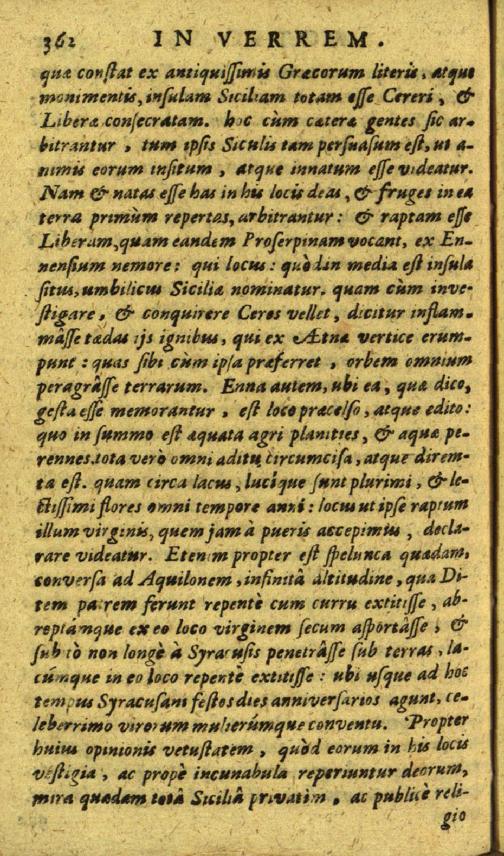 362 IN VERREM.
quæ constat ex antiquissimis Græcorum literis, atque
monimentis, insulam Siciliam totam esse Cereri, &
Liberæ consecratam. hoc cùm cæteræ gentes sic ar-
bitrantur, tum ipsis Siculis tam persuasum est, ut a-
nimis eorum insitum, atque innatum esse videatur.
Nam & natas esse has in his locis deas, & fruges in ea
terra primùm repertas, arbitrantur: & raptam esse
Liberam, quam eandem Proserpinam vocant, ex En-
nensium nemore: qui locus: quòd in media est insula
situs, umbilicus Siciliæ nominatur. quam cùm inve-
stigare, & conquirere Ceres vellet, dicitur inflam-
masse tædas ijs ignibus, qui ex Ætnæ vertice erum-
punt: quas sibi cùm ipsa præferret, orbem omnium
peragrâsse terrarum. Enna autem, ubi ea, quæ dico,
gesta esse memorantur, est loco præcelso, atque edito:
quo in summo est æquata agri planities, & aquæ pe-
rennes. tota verò omni aditu circumcisa, atque direm-
ta est. quam circa lacus, lucíque sunt plurimi, & le-
ctissimi flores omni tempore anni: locus ut ipse raptum
illum virginis, quem jam à pueris accepimus, decla-
rare videatur. Etenim propter est spelunca quædam,
conversa ad Aquilonem, infinitâ altitudine, qua Di-
tem patrem ferunt repentè cum curru extitisse, ab-
reptámque ex eo loco virginem secum asportâsse, &
subitò non longè à Syracusis penetrâsse sub terras, la-
cúmque in eo loco repentè extitisse: ubi usque ad hoc
tempus Syracusani festos dies anniversarios agunt, ce-
leberrimo virorum mulierúmque conventu. Propter
huius opinionis vetustatem, quòd eorum in his locis
vestigia, ac propè incunabula reperiuntur deorum,
mira quædam totâ Siciliâ privatim, ac publicè reli-
gio